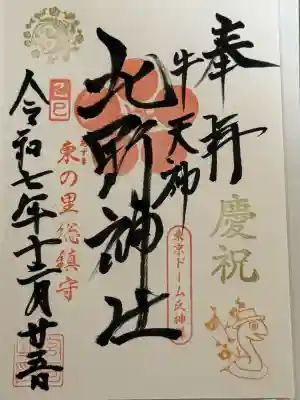 奉拝
慶祝
牛天神
東京ドーム氏神
北野神社
己巳
東の里総鎮守
令和七年十二月廿五日